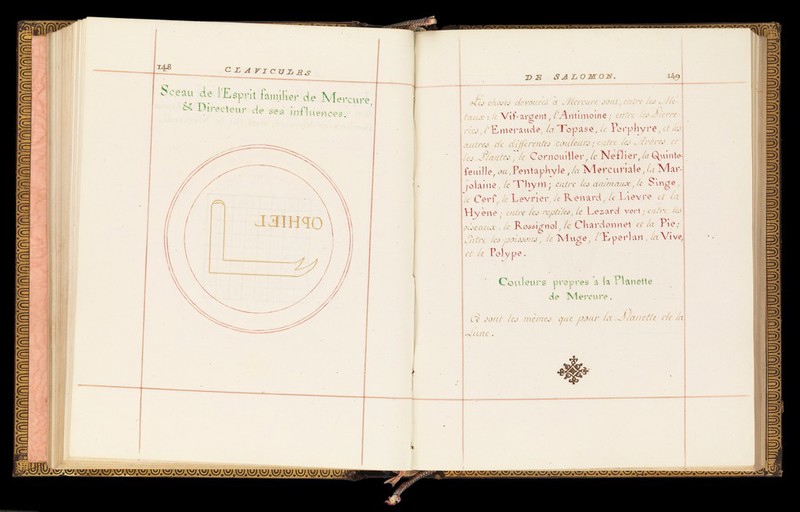 148
CLAVICULES
Sceau de l'Esprit familier de Mercure,
& Directeur de ses influences.
OPHIEL
DE SALOMON.
149
Les choses dévouées à Mercure sont, entre les Mé-
taux : le Vif-argent, l'Antimoine ; entre les Pierre-
ries, l'Emeraude, la Topase, le Porphyre, et les
autres de différentes couleurs ; entre les Arbres et
les Plantes, le Cornouiller, le Néflier, la Quinte-
feuille, ou Pentaphyle, la Mercuriale, la Mar-
jolaine, le Thym ; entre les animaux, le Singe,
le Cerf, le Levrier, le Renard, le Lievre et la
Hyène ; entre les reptiles, le Lezard vert ; entre les
oiseaux, le Rossignol, le Chardonnet et la Pie ;
Entre les poissons, le Muge, l'Eperlan, la Vive,
et le Polype.
Couleurs propres à la Planette
de Mercure.
Ce sont les mêmes que pour la Planette de la
Lune.